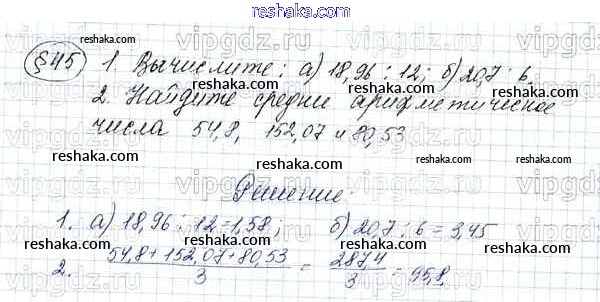 §45 1. Вычислите: а) 18,96 : 12; б) 20,7 : 6.
2. Найдите средни арифметическое
числа 54,8, 152,07 и 80,53
Решение:
1. а) 18,96 : 12 = 1,58; б) 20,7 : 6 = 3,45
2. (54,8+152,07+80,53)/3 = 287,4/3 = 95,8.
reshaka.com
vipgdz.ru